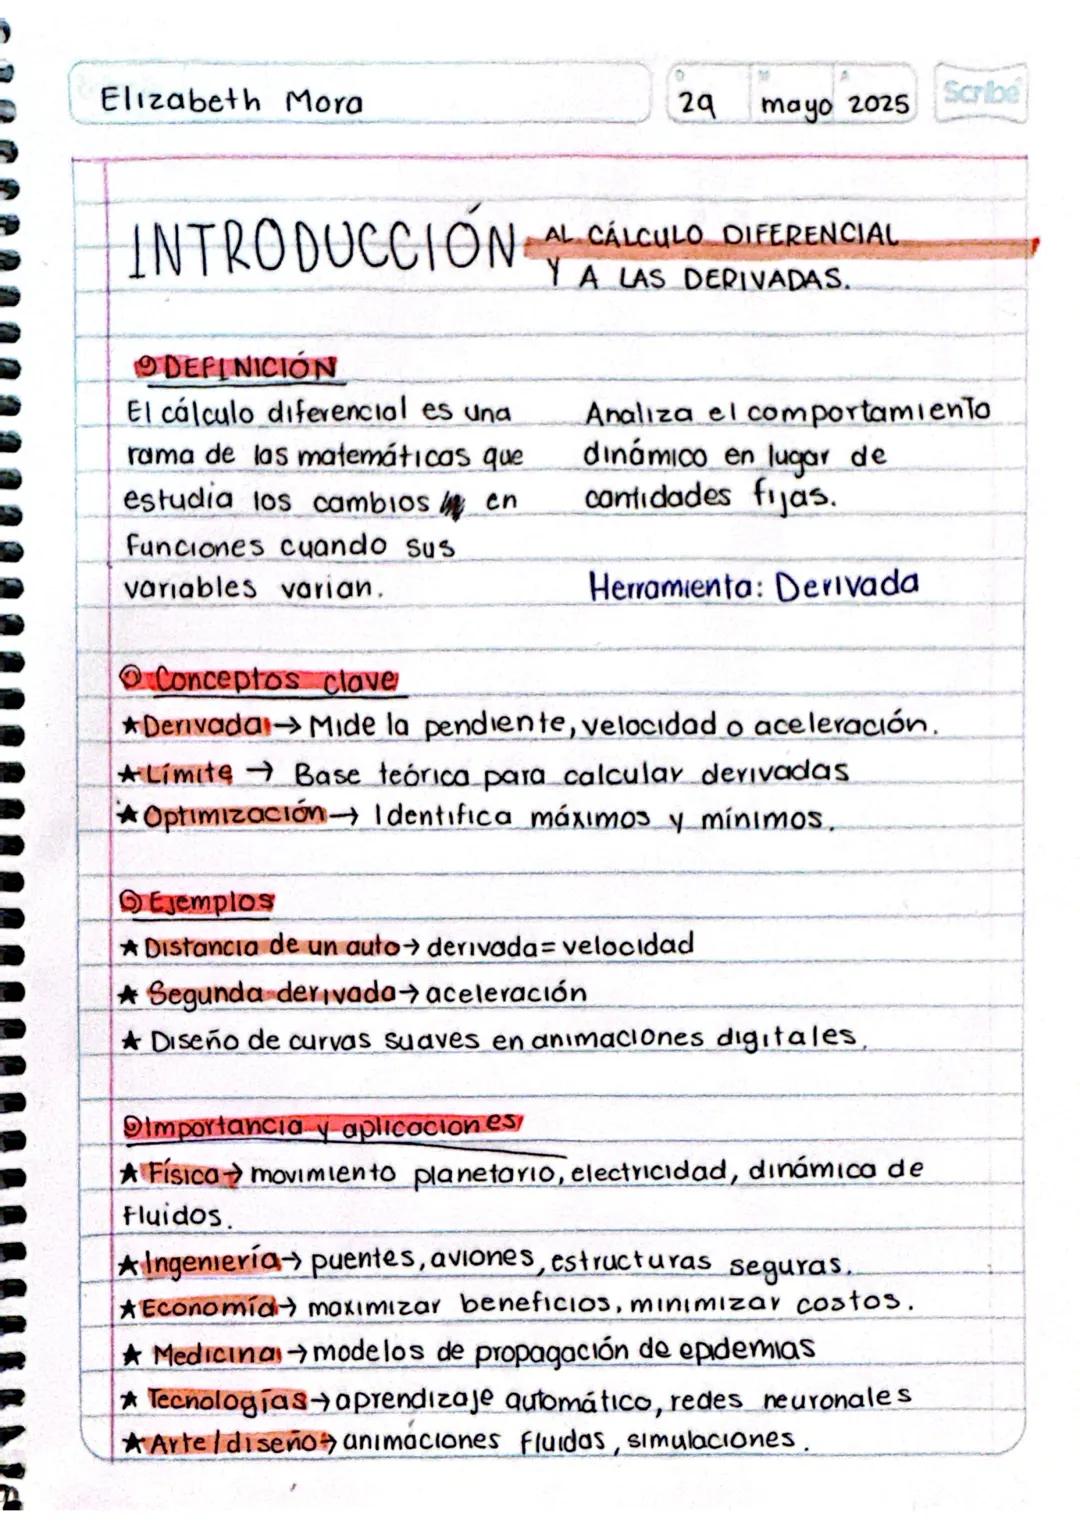 Elizabeth Mora
D M A
29 mayo 2025
Scribe
INTRODUCCIÓN AL CÁLCULO DIFERENCIAL
Y A LAS DERIVADAS.
DEFINICIÓN
El cálculo diferencial es una
rama de las matemáticas que
estudia los cambios en
funciones cuando sus
variables varian.
Analiza el comportamiento
dinámico en lugar de
cantidades fijas.
Herramienta: Derivada
Conceptos clave
★Derivada→ Mide la pendiente, velocidad o aceleración.
★Límite → Base teórica para calcular derivadas
★Optimización→ Identifica máximos y mínimos.
Ejemplos
★Distancia de un auto→ derivada= velocidad
★ Segunda derivada→ aceleración
★ Diseño de curvas suaves en animaciones digitales.
Importancia y aplicaciones
★ Física→ movimiento planetario, electricidad, dinámica de
fluidos.
★Ingeniería→ puentes, aviones, estructuras seguras.
★Economía→ maximizar beneficios, minimizar costos.
★ Medicina→ modelos de propagación de epidemias
★ Tecnologías→ aprendizaje automático, redes neuronales
★Arte/diseño→ animaciones fluidas, simulaciones.